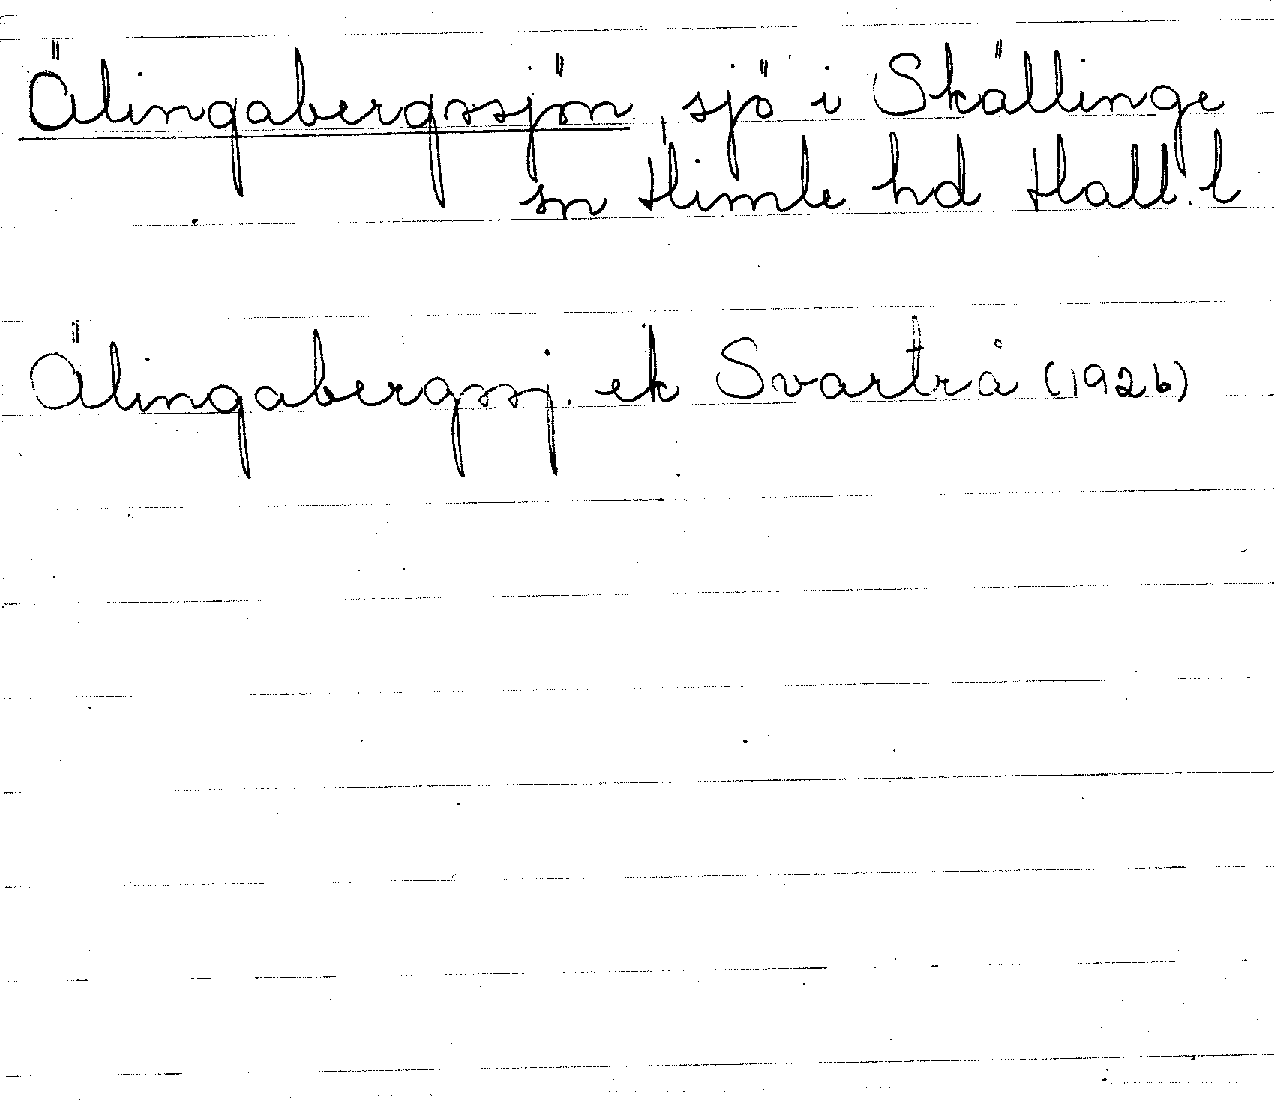 Älingabergssjön, sjö i Skällinge
sn Himle hd Hall. l
Älingabergssj. ek Svartrå (1926)